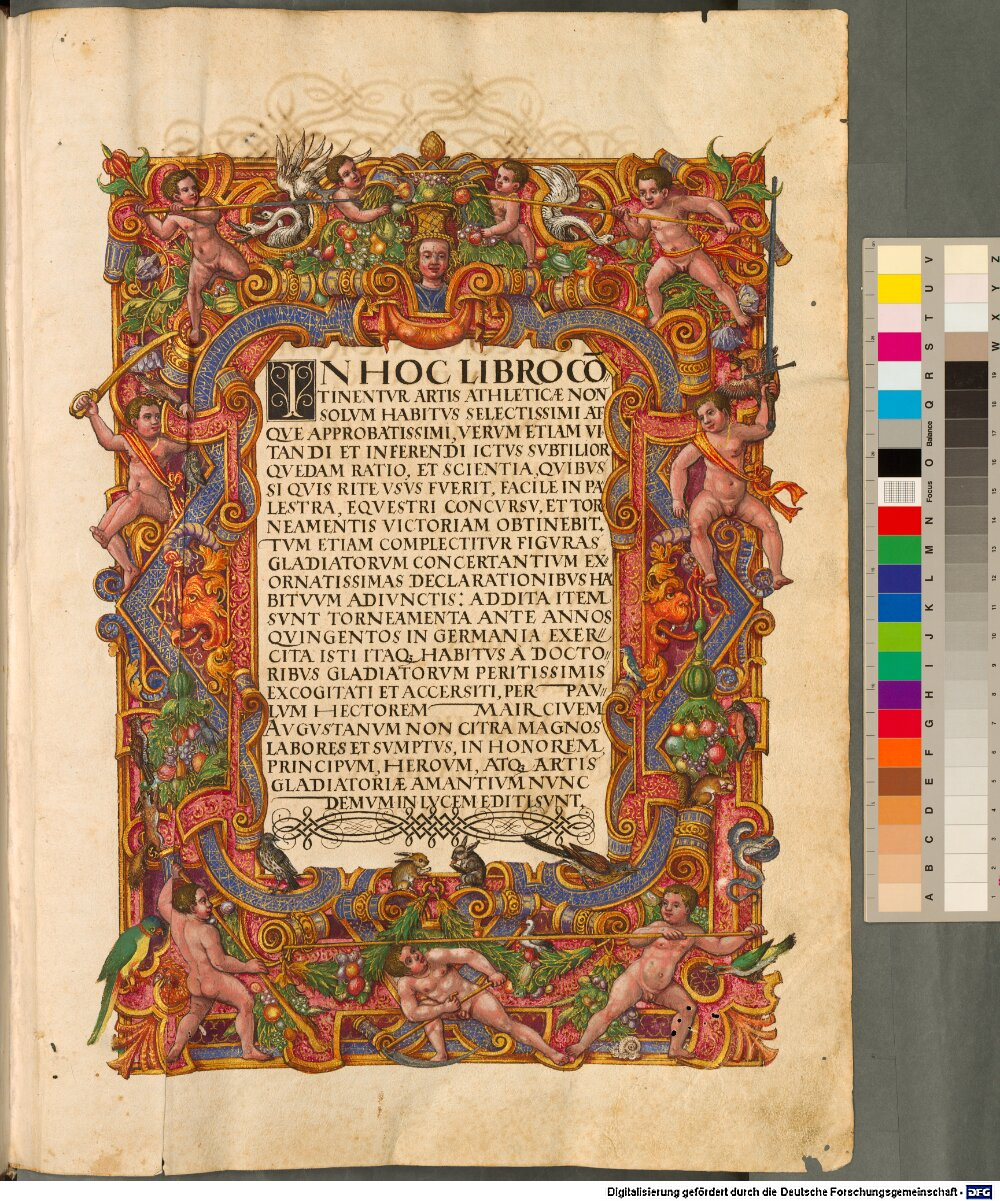 IN HOC LIBRO CŌ,
TINENTVR ARTIS ATHLETICÆ NON
SOLVM HABITVS SELECTISSIMI AT
QVE APPROBATISSIMI, VERVM ETIAM VI
TANDI ET INFERENDI ICTVS SVBTILIOR
QVEDAM RATIO, ET SCIENTIA, QVIBVS
SI QVIS RITE VSVS FVERIT, FACILE IN PA
LESTRA, EQVESTRI CONCVRSV, ET TOR
NEAMENTIS VICTORIAM OBTINEBIT,
TVM ETIAM COMPLECTITVR FIGVRAS
GLADIATORVM CONCERTANTIVM EX
ORNATISSIMAS DECLARATIONIBVS HA
BITVVM ADIVNCTIS: ADDITA ITEM
SVNT TORNEAMENTA ANTE ANNOS
QVINGENTOS IN GERMANIA EXER//
CITA ISTI ITAQ; HABITVS A DOCTO//
RIBVS GLADIATORVM PERITISSIMIS
EXCOGITATI ET ACCERSITI, PER PAV//
LVM HECTOREM MAIR CIVEM
AVGVSTANVM NON CITRA MAGNOS
LABORES ET SVMPTVS, IN HONOREM
PRINCIPVM, HEROVM, ATQ; ARTIS
GLADIATORIÆ AMANTIVM NVNC
DEMVM IN LVCEM EDITI SVNT,
A B C D E F G H I J K L M N O Balance Q R S T U V
Focus
W X Y Z
19 18 17 16 15 14 13 12 11 10 9 8 7 6 5 4 3 2 1
Digitalisierung gefördert durch die Deutsche Forschungsgemeinschaft - DFG